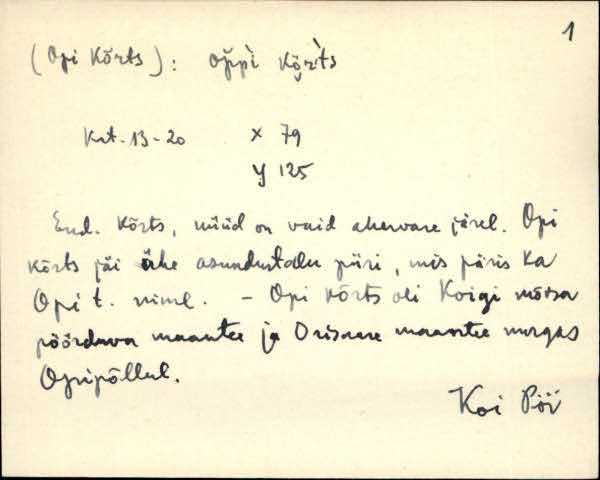 1
(Opi Kõrts): op̆pì kõ̭r̀ts
Kat. 13-20 x 79
y 125
End. kõrts, nüüd on vaid ahervare järel. Opi
kõrts jäi ühe asundustalu piiri, mis päris ka
Opi t. nime. - Opi kõrts oli Koigi mõtsa
pöörduva maantee ja Orisaare maantee nurgas
Opipõllul.
Koi Pöi